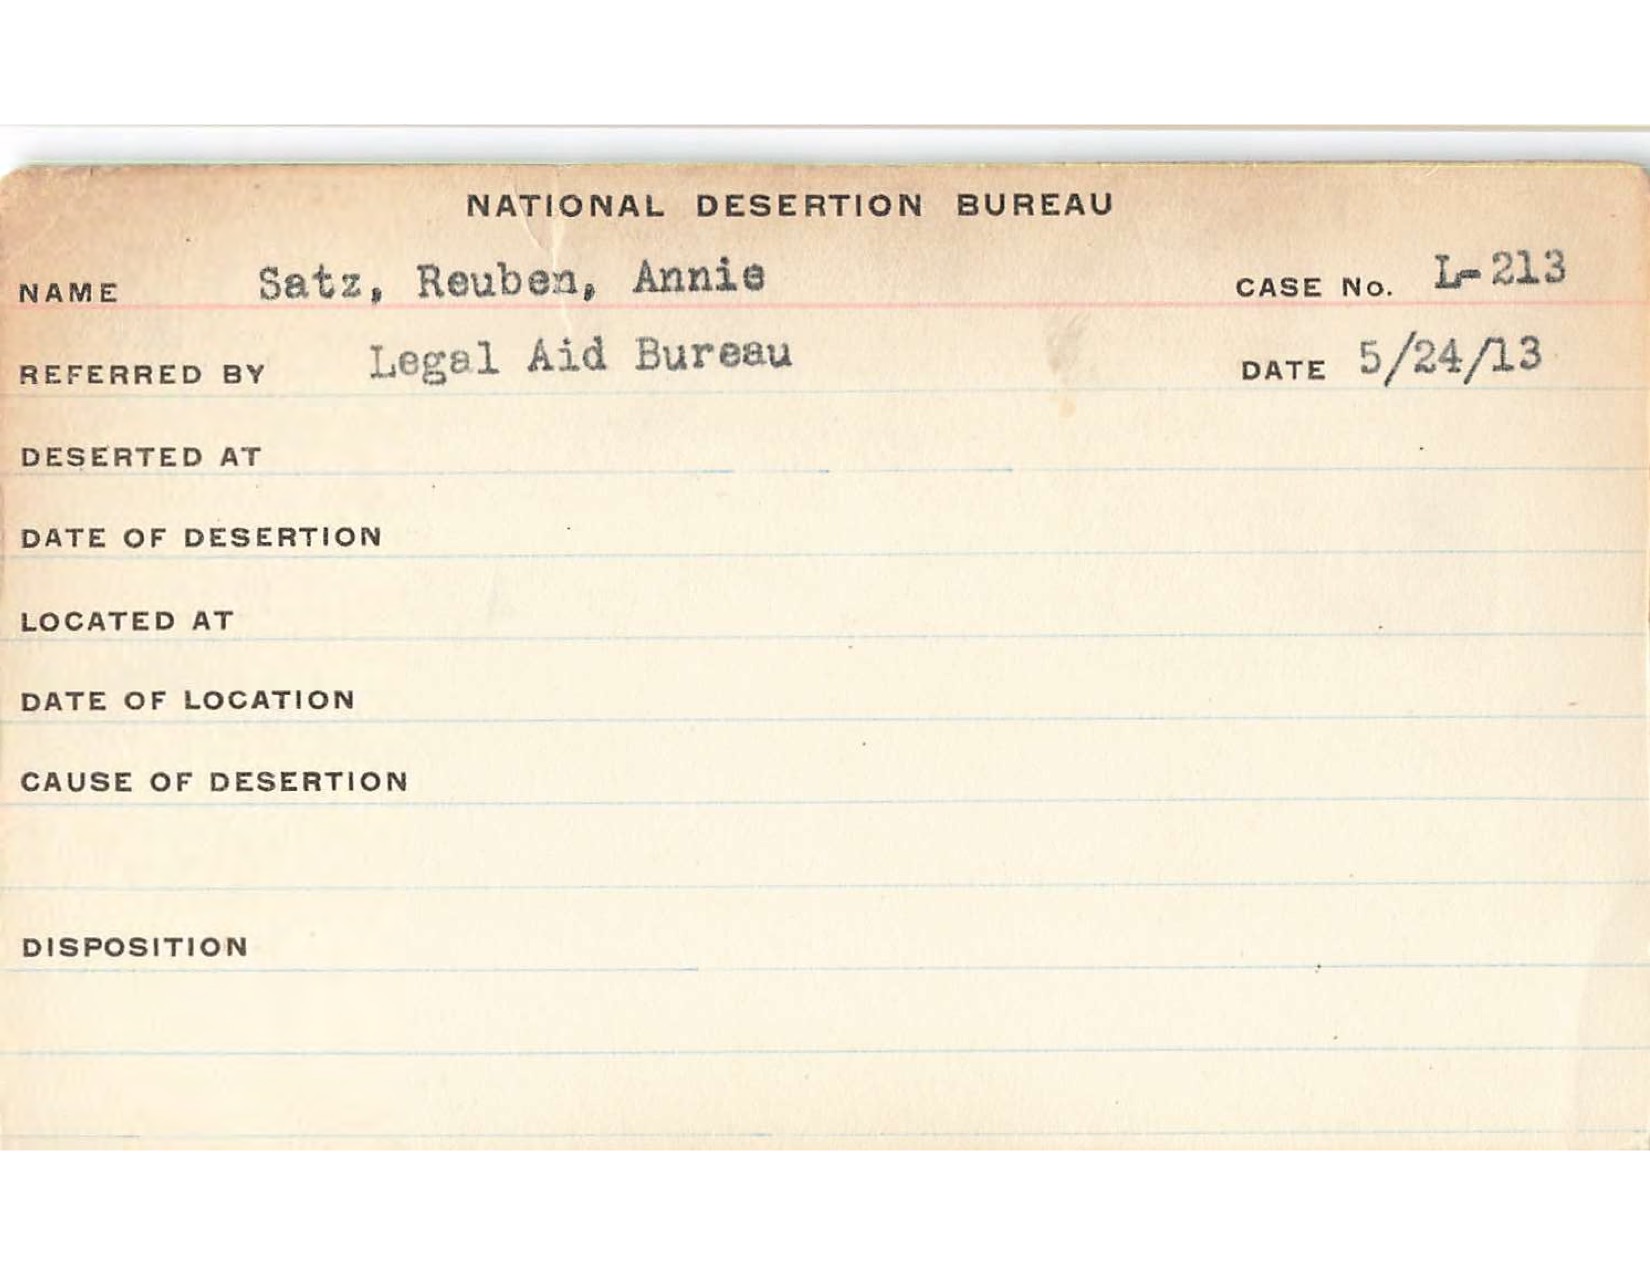 NATIONAL DESERTION BUREAU
NAME Satz, Reuben, Annie CASE No. L-213
REFERRED BY Legal Aid Bureau DATE 5/24/13
DESERTED AT
DATE OF DESERTION
LOCATED AT
DATE OF LOCATION
CAUSE OF DESERTION
DISPOSITION